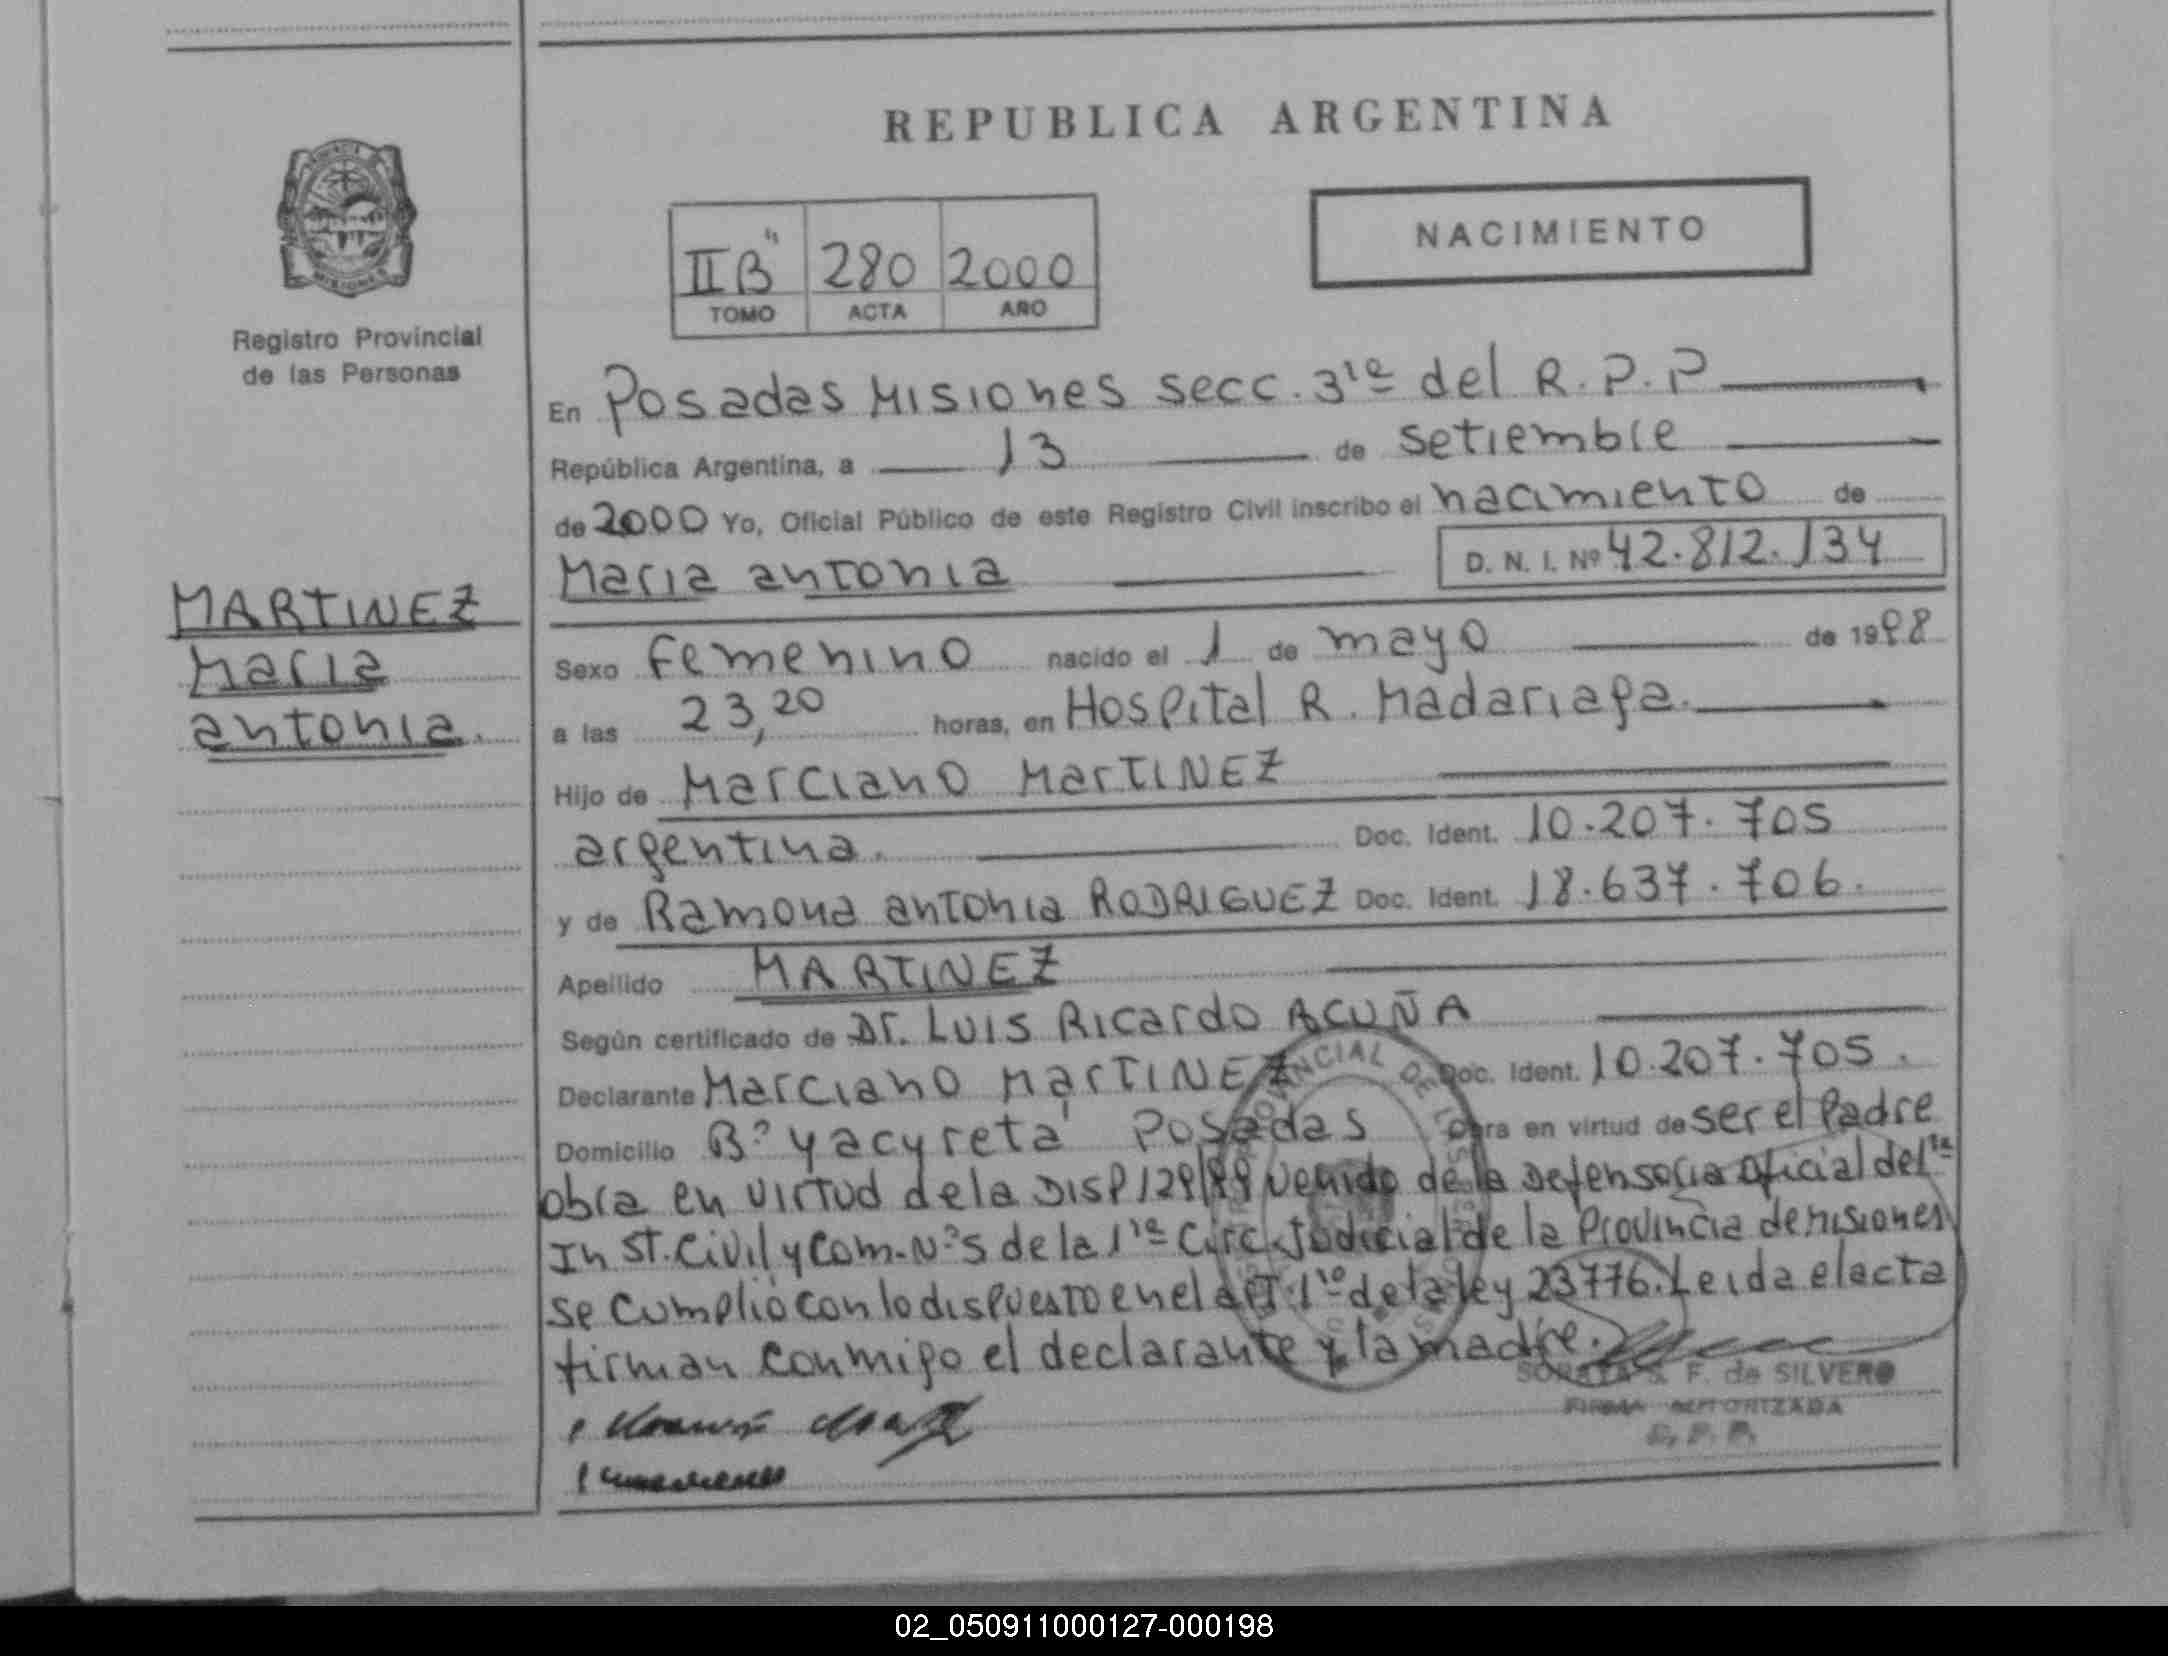 REPUBLICA ARGENTINA
NACIMIENTO
IIB" 280 2000
TOMO ACTA AÑO
Registro Provincial
de las Personas
MARTINEZ
Maria
antonia.
En Posadas Misiones secc. 3ra del R.P.P
República Argentina, a 13 de setiembre
de 2000 Yo, Oficial Público de este Registro Civil inscribo el nacimiento de
Maria antonia D. N. I. Nº 42.812.134
Sexo Femenino nacido el 1 de mayo de 1998
a las 23,20 horas, en Hospital R. Madariaga.
Hijo de Marciano MARTINEZ
argentina. Doc. Ident. 10.207.705
y de Ramona antonia RODRIGUEZ Doc. Ident. 18.637.706.
Apellido MARTINEZ
Según certificado de Dr. Luis Ricardo ACUÑA
Declarante Marciano MARTINEZ Doc. Ident. 10.207.705.
Domicilio Bº yacyreta Posadas Obra en virtud de ser el Padre
obra en virtud de la DISP 129/99 venido de la Defensoria oficial del 1ra
Inst. Civil y Com. Nº5 de la 1ra Circ. Judicial de la Provincia de misiones
se cumplio con lo dispuesto en el art. 1ro de la ley 23776. Leida el acta
firman conmigo el declarante y la madre.
S. F. de SILVERO
FIRMA AUTORIZADA
02_050911000127-000198